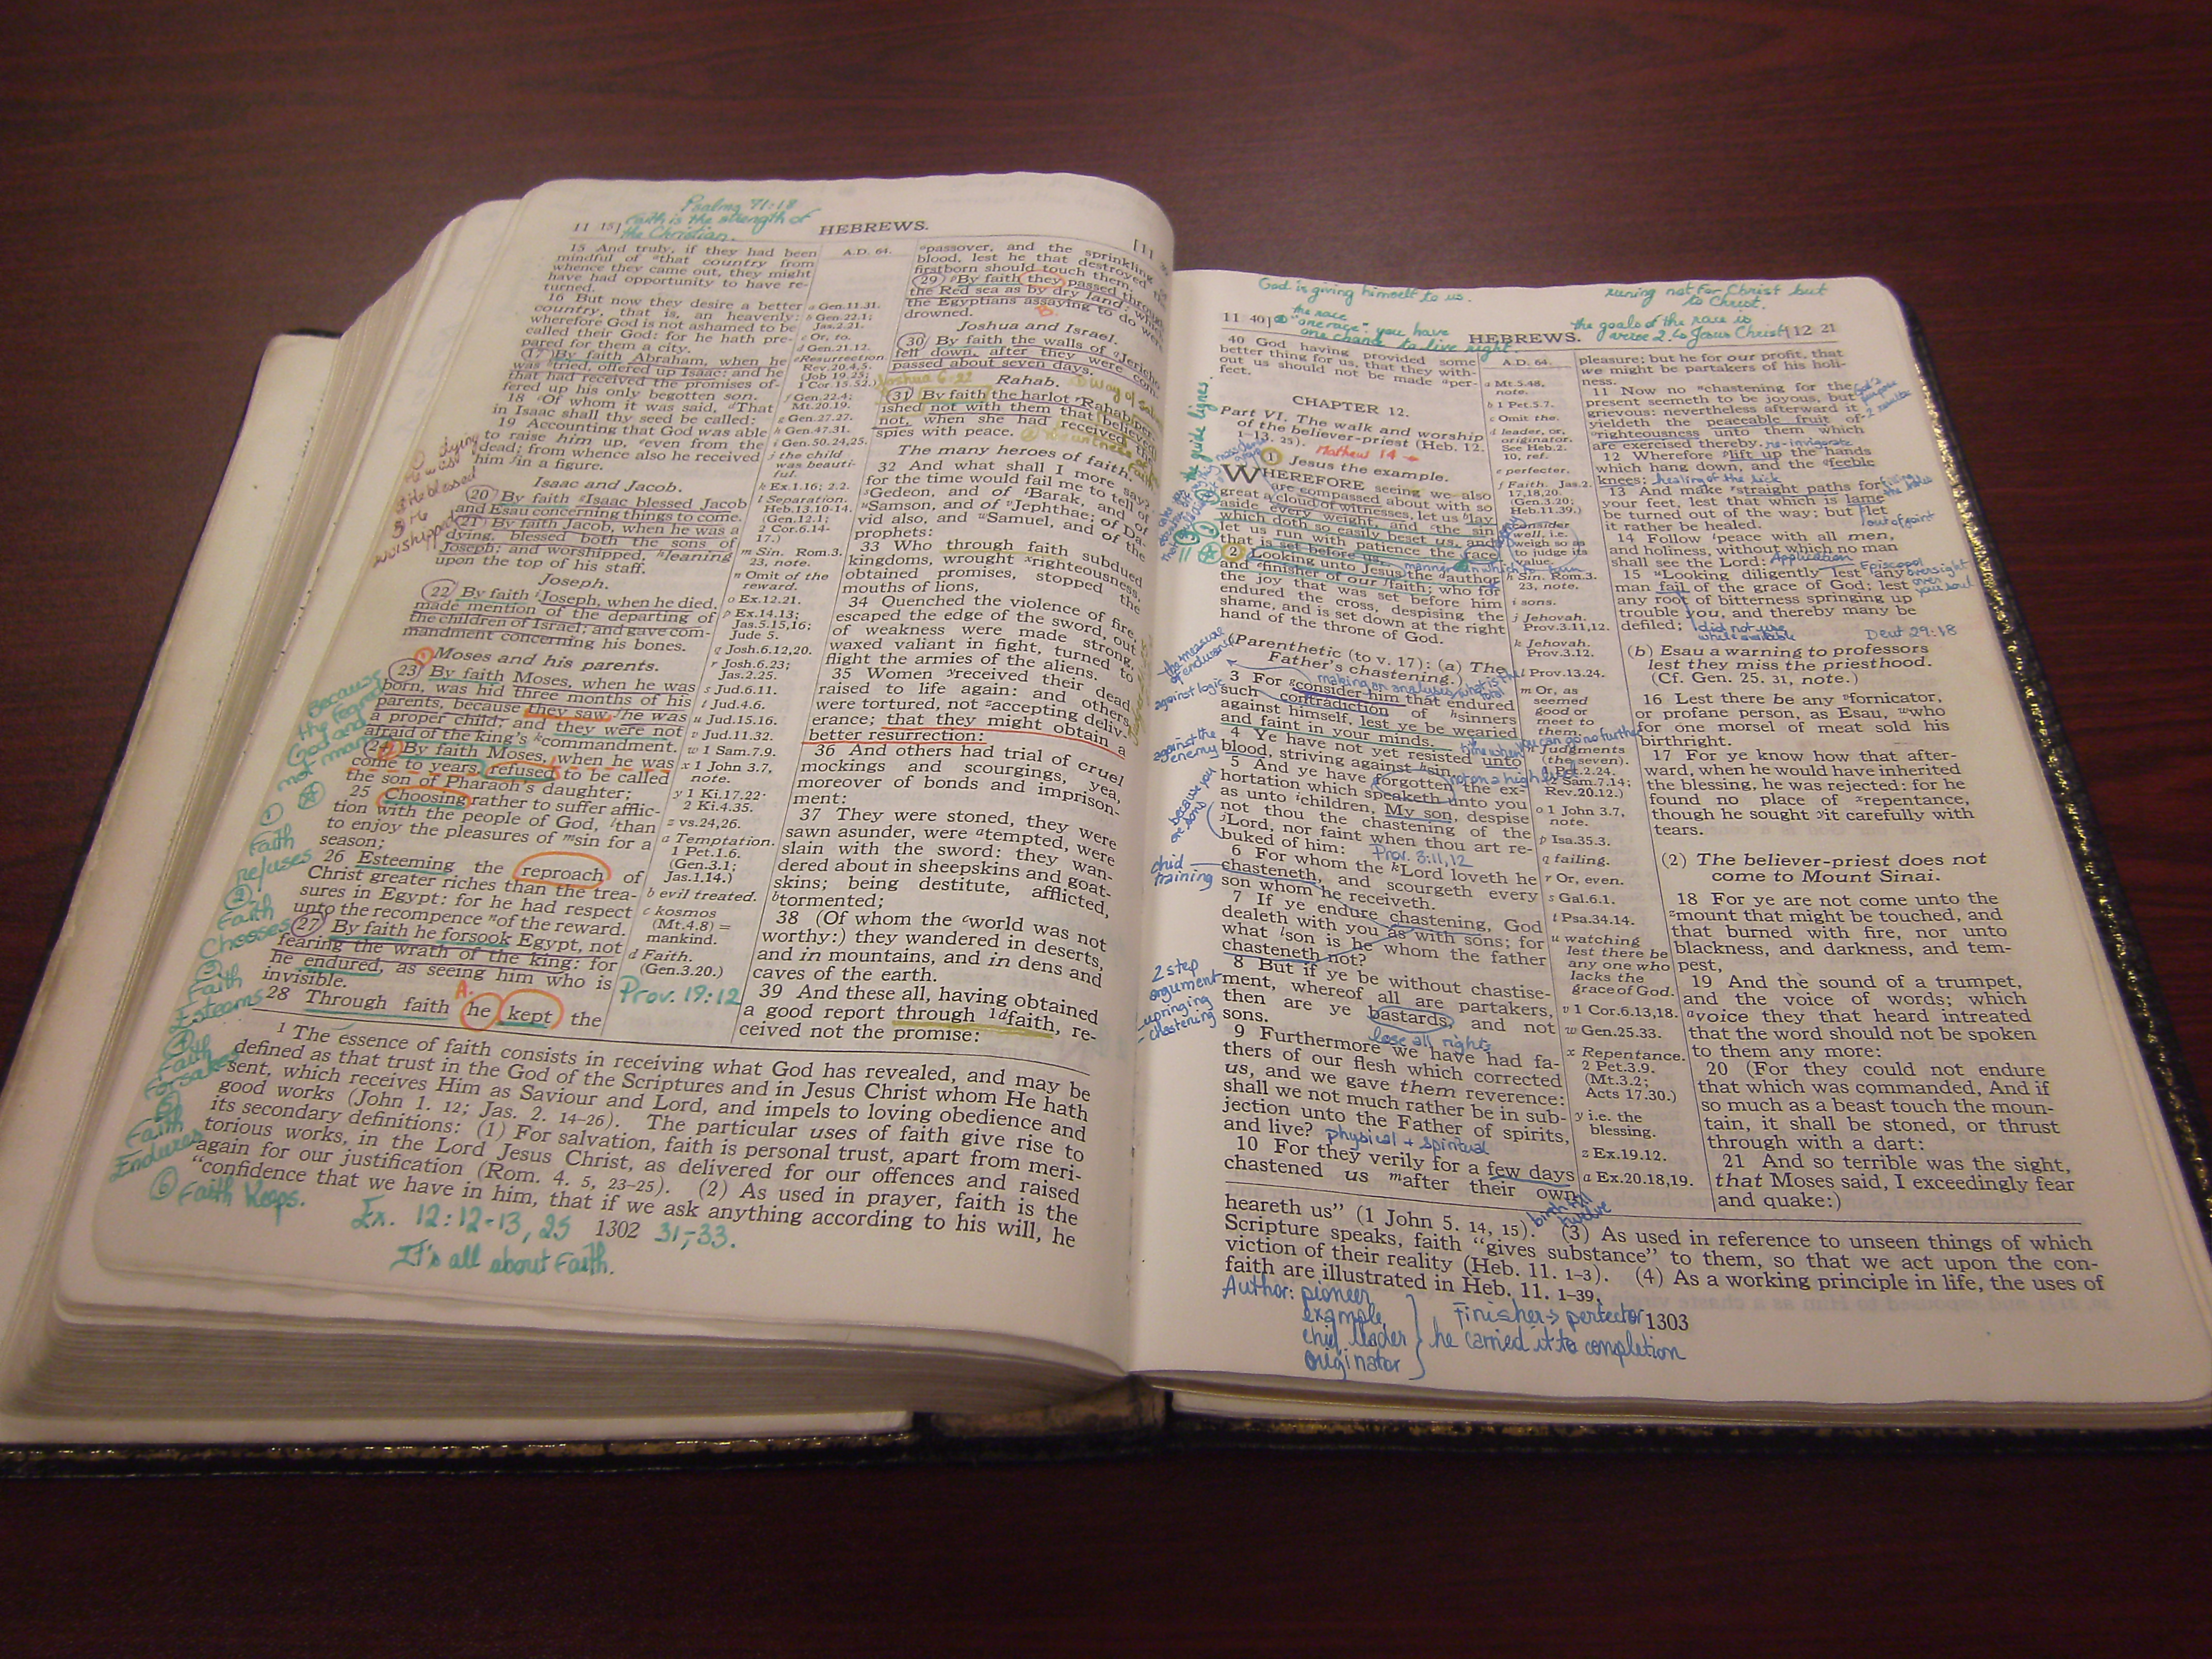 Psalms 71:18
Faith is the strength of
the Christian.
11 15]
HEBREWS.
[11
15 And truly, if they had been
mindful of that country from
whence they came out, they might
have had opportunity to have re-
turned.
16 But now they desire a better
country, that is, an heavenly:
wherefore God is not ashamed to be
called their God: for he hath pre-
pared for them a city.
17 By faith Abraham, when he
was tried, offered up Isaac: and he
that had received the promises of-
fered up his only begotten son.
18 Of whom it was said, That
in Isaac shall thy seed be called:
19 Accounting that God was able
to raise him up, even from the
dead; from whence also he received
him in a figure.
Isaac and Jacob.
20 By faith Isaac blessed Jacob
and Esau concerning things to come.
21 By faith Jacob, when he was a
dying, blessed both the sons of
Joseph; and worshipped, leaning
upon the top of his staff.
Joseph.
22 By faith Joseph, when he died,
made mention of the departing of
the children of Israel; and gave com-
mandment concerning his bones.
Moses and his parents.
23 By faith Moses, when he was
born, was hid three months of his
parents, because they saw he was
a proper child; and they were not
afraid of the king's commandment.
24 By faith Moses, when he was
come to years, refused to be called
the son of Pharaoh's daughter;
25 Choosing rather to suffer afflic-
tion with the people of God, than
to enjoy the pleasures of sin for a
season;
26 Esteeming the reproach of
Christ greater riches than the trea-
sures in Egypt: for he had respect
unto the recompence of the reward.
27 By faith he forsook Egypt, not
fearing the wrath of the king: for
he endured, as seeing him who is
invisible.
A.
28 Through faith he kept the
dying
He was
He blessed
3 He
worshipped
Because
they feared
God and
not man
① Faith
refuses
② Faith
Chooses
③ Faith
Esteems
④ Faith
Forsakes
⑤ Faith
Endures
⑥ Faith Keeps.
A.D. 64.
a Gen.11.31.
b Gen.22.1;
Jas.2.21.
c Or, to.
d Gen.21.12.
e Resurrection.
Rev.20.4,5.
(Job 19.25;
1 Cor.15.52.)
f Gen.22.4;
Mt.20.19.
g Gen.27.27.
h Gen.47.31.
i Gen.50.24,25.
j the child
was beauti-
ful.
k Ex.1.16; 2.2.
l Separation.
Heb.13.10-14.
(Gen.12.1;
2 Cor.6.14-
17.)
m Sin. Rom.3.
23, note.
n Omit of the
reward.
o Ex.12.21.
p Ex.14.13;
Jas.5.15,16;
Jude 5.
q Josh.6.12,20.
r Josh.6.23;
Jas.2.25.
s Jud.6.11.
t Jud.4.6.
u Jud.15.16.
v Jud.11.32.
w 1 Sam.7.9.
x 1 John 3.7,
note.
y 1 Ki.17.22;
2 Ki.4.35.
z vs.24,26.
a Temptation.
1 Pet.1.6.
(Gen.3.1;
Jas.1.14.)
b evil treated.
c kosmos
(Mt.4.8) =
mankind.
d Faith.
(Gen.3.20.)
Prov. 19:12
passover, and the sprinkling
blood, lest he that destroyed
firstborn should touch them.
29 By faith they passed through
the Red sea as by dry land: which
the Egyptians assaying to do were
drowned.
B.
Joshua and Israel.
30 By faith the walls of Jericho
fell down, after they were com-
passed about seven days.
Joshua 6:22
Rahab.
31 By faith the harlot Rahab per-
ished not with them that believed
not, when she had received the
spies with peace.
The many heroes of faith.
32 And what shall I more say?
for the time would fail me to tell of
Gedeon, and of Barak, and of
Samson, and of Jephthae; of Da-
vid also, and Samuel, and of the
prophets:
33 Who through faith subdued
kingdoms, wrought righteousness,
obtained promises, stopped the
mouths of lions,
34 Quenched the violence of fire,
escaped the edge of the sword, out
of weakness were made strong,
waxed valiant in fight, turned to
flight the armies of the aliens.
35 Women received their dead
raised to life again: and others
were tortured, not accepting deliv-
erance; that they might obtain a
better resurrection:
36 And others had trial of cruel
mockings and scourgings, yea,
moreover of bonds and imprison-
ment:
37 They were stoned, they were
sawn asunder, were tempted, were
slain with the sword: they wan-
dered about in sheepskins and goat-
skins; being destitute, afflicted,
tormented;
38 (Of whom the world was not
worthy:) they wandered in deserts,
and in mountains, and in dens and
caves of the earth.
39 And these all, having obtained
a good report through faith, re-
ceived not the promise:
1 The essence of faith consists in receiving what God has revealed, and may be
defined as that trust in the God of the Scriptures and in Jesus Christ whom He hath
sent, which receives Him as Saviour and Lord, and impels to loving obedience and
good works (John 1. 12; Jas. 2. 14-26). The particular uses of faith give rise to
its secondary definitions: (1) For salvation, faith is personal trust, apart from meri-
torious works, in the Lord Jesus Christ, as delivered for our offences and raised
again for our justification (Rom. 4. 5, 23-25). (2) As used in prayer, faith is the
"confidence that we have in him, that if we ask anything according to his will, he
Ex. 12:12-13, 25
1302
31-33.
It's all about Faith.
God is giving himself to us.
runing not for Christ but
to Christ.
the race
"one race": you have
one chance to live right.
the goals of the race is
Jesus Christ
11 40]
HEBREWS.
[12 21
40 God having provided some
better thing for us, that they with-
out us should not be made per-
fect.
CHAPTER 12.
Part VI. The walk and worship
of the believer-priest (Heb. 12.
1-13. 25).
Mathew 14
Jesus the example.
WHEREFORE seeing we also
are compassed about with so
great a cloud of witnesses, let us lay
aside every weight, and the sin
which doth so easily beset us, and
let us run with patience the race
that is set before us,
2 Looking unto Jesus the author
and finisher of our faith; who for
the joy that was set before him
endured the cross, despising the
shame, and is set down at the right
hand of the throne of God.
(Parenthetic (to v. 17): (a) The
Father's chastening.)
3 For consider him that endured
such contradiction of sinners
against himself, lest ye be wearied
and faint in your minds.
4 Ye have not yet resisted unto
blood, striving against sin.
5 And ye have forgotten the ex-
hortation which speaketh unto you
as unto children, My son, despise
not thou the chastening of the
Lord, nor faint when thou art re-
buked of him:
Prov. 3:11,12
6 For whom the Lord loveth he
chasteneth, and scourgeth every
son whom he receiveth.
7 If ye endure chastening, God
dealeth with you as with sons; for
what son is he whom the father
chasteneth not?
8 But if ye be without chastise-
ment, whereof all are partakers,
then are ye bastards, and not
sons.
lose all rights
9 Furthermore we have had fa-
thers of our flesh which corrected
us, and we gave them reverence:
shall we not much rather be in sub-
jection unto the Father of spirits,
and live?
physical + spiritual
10 For they verily for a few days
chastened us after their own
birth till
twelve
the guide lignes.
the measure
of endurance
against logic
against the
enemy
because you
are sons
chid
training
2 step
argument
- upringing
- chastening
A.D. 64.
a Mt.5.48,
note.
b 1 Pet.5.7.
c Omit the.
d leader, or,
originator.
See Heb.2.
10, ref.
e perfecter.
f Faith. Jas.2.
17,18,20.
(Gen.3.20;
Heb.11.39.)
g consider
well, i.e.
weigh so as
to judge its
value.
h Sin. Rom.3.
23, note.
i sons.
j Jehovah.
Prov.3.11,12.
k Jehovah.
Prov.3.12.
l Prov.13.24.
m Or, as
seemed
good or
meet to
them.
n Judgments
(the seven).
1 Pet.2.24.
(2 Sam.7.14;
Rev.20.12.)
o 1 John 3.7,
note.
p Isa.35.3.
q failing.
r Or, even.
s Gal.6.1.
t Psa.34.14.
u watching
lest there be
any one who
lacks the
grace of God.
v 1 Cor.6.13,18.
w Gen.25.33.
x Repentance.
2 Pet.3.9.
(Mt.3.2;
Acts 17.30.)
y i.e. the
blessing.
z Ex.19.12.
a Ex.20.18,19.
pleasure; but he for our profit, that
we might be partakers of his holi-
ness.
11 Now no chastening for the
present seemeth to be joyous, but
grievous: nevertheless afterward it
yieldeth the peaceable fruit of
righteousness unto them which
are exercised thereby.
re-invigorate
12 Wherefore lift up the hands
which hang down, and the feeble
knees;
healing of the sick
13 And make straight paths for
your feet, lest that which is lame
be turned out of the way; but let
it rather be healed.
out of joint
14 Follow peace with all men,
and holiness, without which no man
shall see the Lord:
Application
Episcopol
oversight
over
your soul
15 Looking diligently lest any
man fail of the grace of God; lest
any root of bitterness springing up
trouble you, and thereby many be
defiled;
did not use
what available
Deut 29:18
(b) Esau a warning to professors
lest they miss the priesthood.
(Cf. Gen. 25. 31, note.)
16 Lest there be any fornicator,
or profane person, as Esau, who
for one morsel of meat sold his
birthright.
17 For ye know how that after-
ward, when he would have inherited
the blessing, he was rejected: for he
found no place of repentance,
though he sought it carefully with
tears.
(2) The believer-priest does not
come to Mount Sinai.
18 For ye are not come unto the
mount that might be touched, and
that burned with fire, nor unto
blackness, and darkness, and tem-
pest,
19 And the sound of a trumpet,
and the voice of words; which
voice they that heard intreated
that the word should not be spoken
to them any more:
20 (For they could not endure
that which was commanded, And if
so much as a beast touch the moun-
tain, it shall be stoned, or thrust
through with a dart:
21 And so terrible was the sight,
that Moses said, I exceedingly fear
and quake:)
heareth us" (1 John 5. 14, 15). (3) As used in reference to unseen things of which
Scripture speaks, faith "gives substance" to them, so that we act upon the con-
viction of their reality (Heb. 11. 1-3). (4) As a working principle in life, the uses of
faith are illustrated in Heb. 11. 1-39.
Author: pioneer
example,
chief leader
originator
Finisher → perfector
he carried it to completion
1303